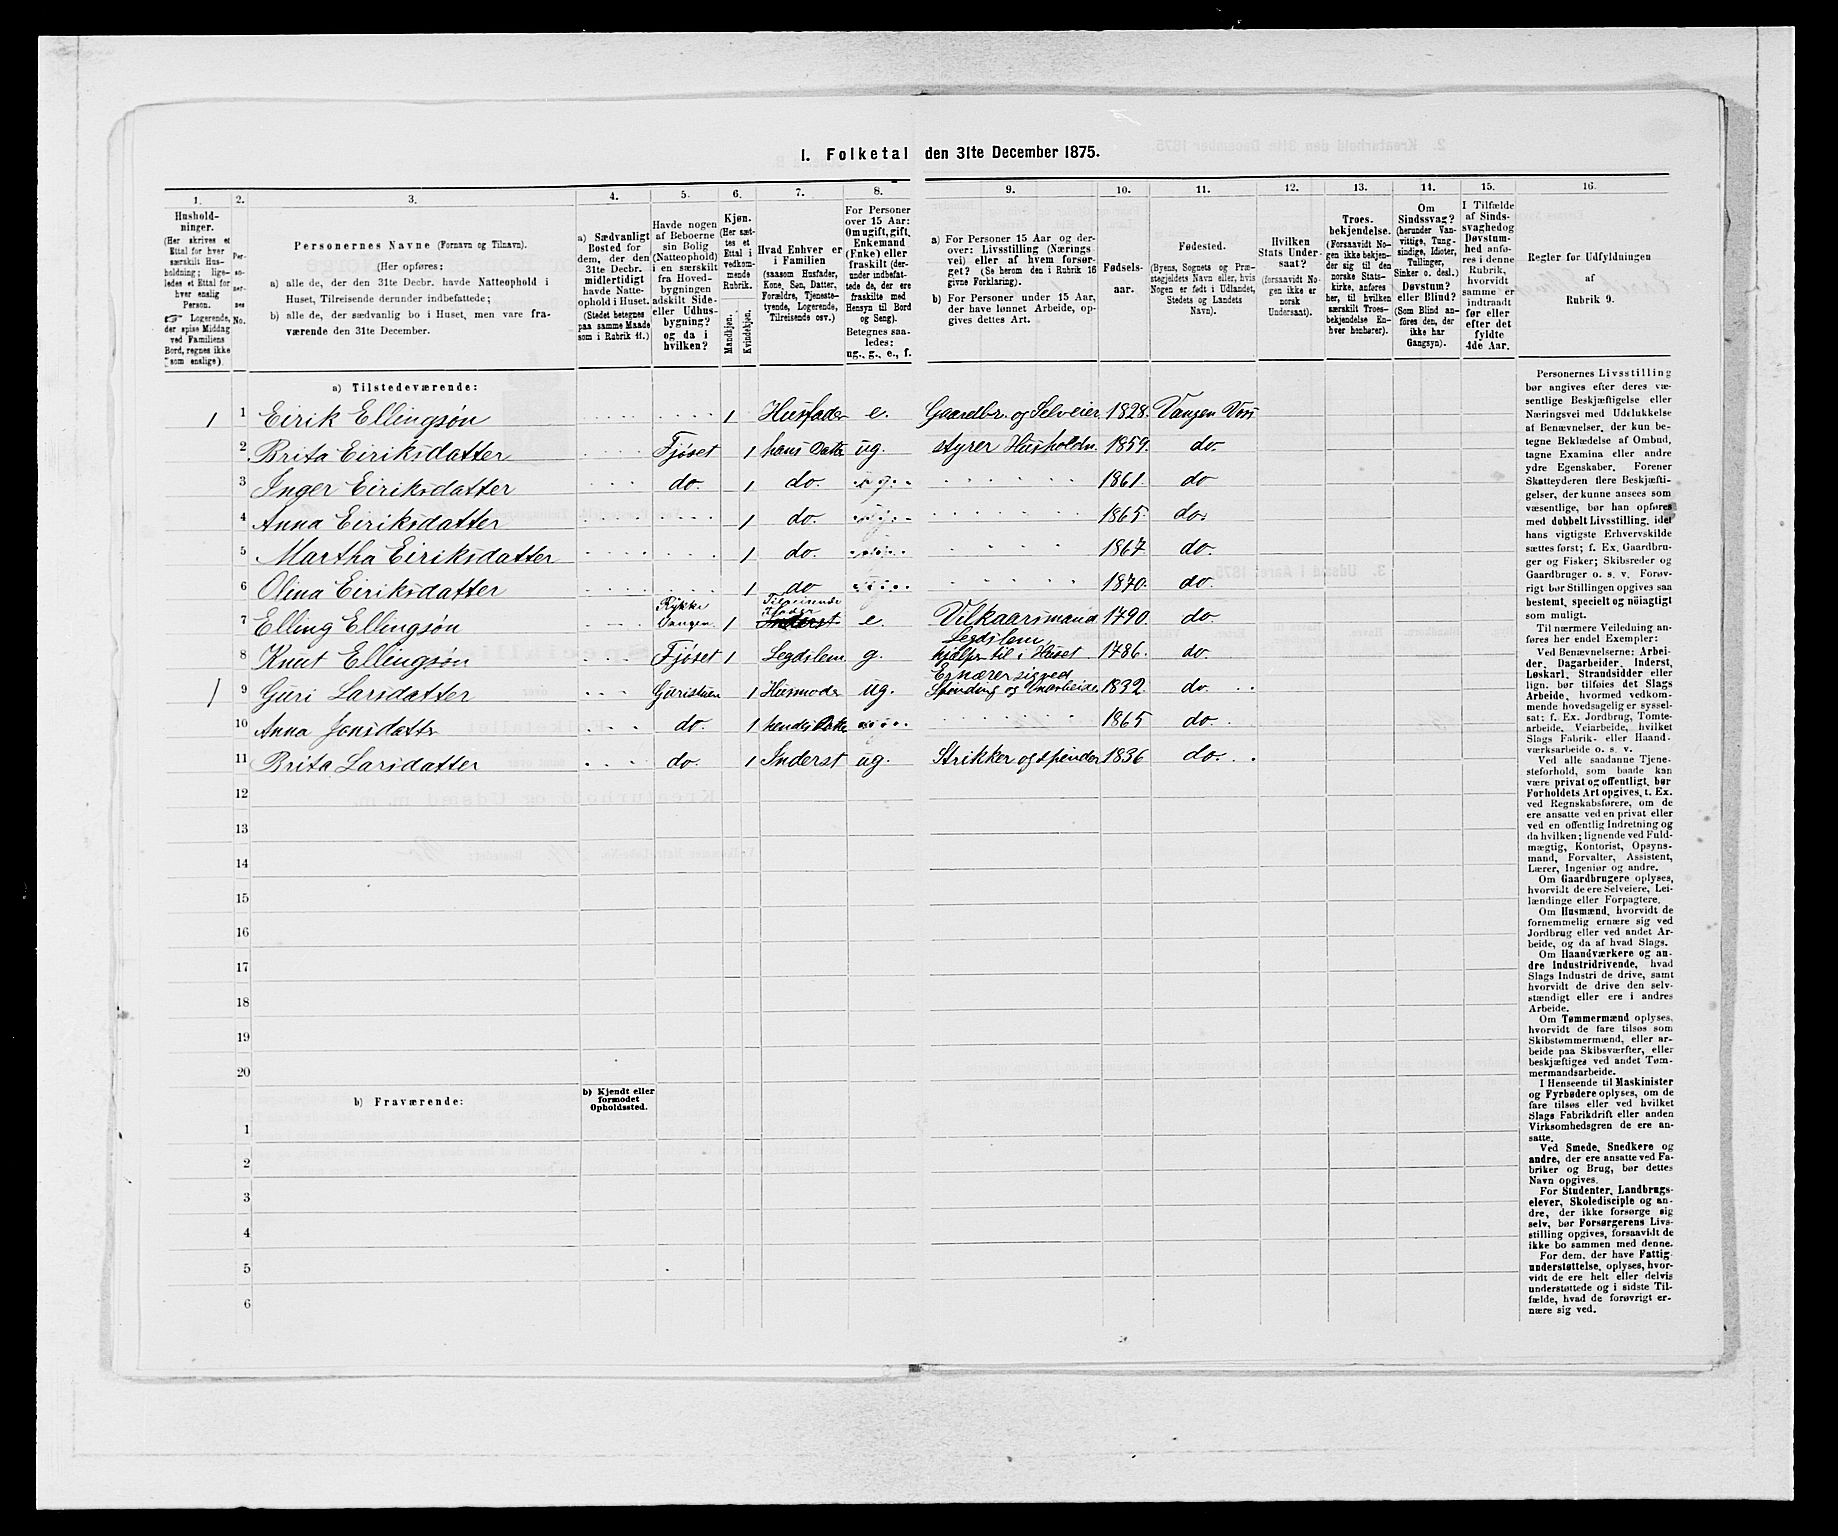 1. Folketal den 31te December 1875.
1.
2.
3.
4.
5.
6.
7.
8.
9.
10.
11.
12.
13.
14.
15.
16.
Hushold-
ninger.
(Her skrives et
Ettal for hver
særskilt Hus-
holdning; lige-
ledes et Ettal for
hver enslig
Person.
☞ Logerende,
der spise Middag
ved Familiens
Bord, regnes ikke
som enslige)
Per-
so-
ner-
nes
No.
Personernes Navne (Fornavn og Tilnavn).
(Her opføres:
a) alle de, der den 31te Decbr. havde Natteophold i
Huset, Tilreisende derunder indbefattede;
b) alle de, der sædvanlig bo i Huset, men vare fra-
værende den 31te December.
a) Sædvanligt
Bosted for
dem, der den
31te Decbr.
midlertidigt
havde Natte-
ophold i Huset.
(Stedet betegnes
paa samme Maade
som i Rubrik 11.)
Havde nogen
af Beboerne
sin Bolig
(Natteophold)
i en særskilt
fra Hoved-
bygningen
adskilt Side-
eller Udhus-
bygning?
og da i
hvilken?
Kjøn.
(Her sæt-
tes et
Ettal i
vedkom-
mende
Rubrik.
Mandkjøn.
Kvindekjøn.
Hvad Enhver er
i Familien
(saasom Husfader,
Kone, Søn, Datter,
Forældre, Tjeneste-
tyende, Logerende,
Tilreisende osv.)
For Personer
over 15 Aar:
Om ugift, gift,
Enkemand
(Enke) eller
fraskilt (der-
under indbefat-
tede de, der ere
fraskilte med
Hensyn til Bord
og Seng).
Betegnes saa-
ledes:
ug., g., e., f.
a) For Personer 15 Aar og der-
over: Livsstilling (Nærings-
vei) eller af hvem forsør-
get? (Se herom den i Rubrik 16
givne Forklaring).
b) For Personer under 15 Aar,
der have lønnet Arbeide, op-
gives dettes Art.
Fødsels-
aar.
Fødested.
(Byens, Sognets og Præ-
stegjeldets Navn eller, hvis
Nogen er født i Udlandet,
Stedets og Landets
Navn).
Hvilken
Stats Under-
saat?
(forsaavidt No-
gen ikke er
norsk
Undersaat).
Troes-
bekjendelse.
(Forsaavidt No-
gen ikke bekjen-
der sig til den
norske Stats-
kirke, anføres
her, til hvilken
særskilt Troes-
bekjendelse En-
hver henhører).
Om
Sindssvag?
(herunder Van-
vittige, Tung-
sindige, Idioter,
Tullinger,
Sinker o. desl.)
Døvstum?
eller Blind?
(Som Blind an-
føres den, der
ikke har
Gangsyn).
I Tilfælde
af Sinds-
svaghed og
Døvstum-
hed anfø-
res i denne
Rubrik,
hvorvidt
samme er
indtraadt
før eller
efter det
fyldte
4de Aar.
Regler for Udfyldningen
af
Rubrik 9.
a) Tilstedeværende:
1 1 Eirik Ellingsøn 1 Husfader e. Gaardbr. og Selveier 1828. Vangen Voss
2 Brita Eiriksdatter Fjøset 1 hans Datter ug. styrer Husholdn. 1859. do.
3 Inger Eiriksdatter do. 1 do. 1861. do
4 Anna Eiriksdatter 1 do. 1865. do.
5 Martha Eiriksdatter 1 do. 1867 do.
6 Olina Eiriksdatter 1 do 1870. do.
7 Elling Ellingsøn 1 Inderst e. Vilkaarsmand 1790. do
8 Knut Ellingsøn Fjøset 1 Legdslem g. Legdslem hjælper til i Huset 1786. do.
1 9 Guri Larsdatter 1 Husmoder ug. Ernærer sig ved Spinding og 1832 do.
10 Anna Jonsdatter do. 1 hendes Datter 1865 do.
11 Brita Larsdatter do. 1 Inderst ug. Strikker og spinder 1836 do.
12
13
14
15
16
17
18
19
20
b) Fraværende:
b) Kjendt eller
formodet
Opholdssted.
1
2
3
4
5
6
Personernes Livsstilling
bør angives efter deres væ-
sentlige Beskjæftigelse eller
Næringsvei med Udelukkelse
af Benævnelser, der kun be-
tegne Beklædelse af Ombud,
tagne Examina eller andre
ydre Egenskaber. Forener
Skatteyderen flere Beskjæfti-
gelser, der kunne ansees som
væsentlige, bør han opføres
med dobbelt Livsstilling, idet
hans vigtigste Erhvervskilde
sættes først; f. Ex. Gaardbru-
ger og Fisker; Skibsreder og
Gaardbruger o. s. v. Forøv-
rigt bør Stillingen opgives saa
bestemt, specielt og nöiagtigt
som muligt.
Til nærmere Veiledning an-
føres her endel Exempler:
Ved Benævnelserne: Arbei-
der, Dagarbeider, Inderst,
Løskarl, Strandsidder eller
lign. bør tilføies det Slags
Arbeide, hvormed vedkom-
mende hovedsagelig er syssel-
sat; f. Ex. Jordbrug, Tomte-
arbeide, Veiarbeide, hvilket
Slags Fabrik- eller Haand-
værksarbeide o. s. v.
Ved alle saadanne Tjene-
steforhold, som baade kan
være privat og offentligt, bør
Forholdets Art opgives, t. Ex.
ved Regnskabsførere, om de
ere ansatte ved en privat eller
ved en offentlig Indretning og
da hvilken; lignende ved Fuld-
mægtig, Kontorist, Opsyns-
mand, Forvalter, Assistent,
Lærer, Ingeniør og andre.
Om Gaardbrugere oplyses,
hvorvidt de ere Selveiere, Lei-
lændinge eller Forpagtere.
Om Husmænd, hvorvidt de
fornemmelig ernære sig ved
Jordbrug eller ved andet Ar-
beide, og da af hvad Slags.
Om Haandværkere og an-
dre Industridrivende, hvad
Slags Industri de drive, samt
hvorvidt de drive den selv-
stændigt eller ere i andres
Arbeide.
Om Tømmermænd oplyses,
hvorvidt de fare tilsøs som
Skibstømmermænd, eller ar-
beide paa Skibsværfter, eller
beskjæftiges ved andet Tøm-
mermandsarbeide.
I Henseende til Maskinister
og Fyrbødere oplyses, om de
fare tilsøs eller ved hvilket
Slags Fabrikdrift eller anden
Virksomhedsgren de ere an-
satte.
Ved Smede, Snedkere og
andre, der ere ansatte ved Fa-
briker og Brug, bør dettes
Navn opgives.
For Studenter, Landbrugs-
elever, Skoledisciple og an-
dre, der ikke forsørge sig
selv, bør Forsørgerens Livs-
stilling opgives, forsaavidt de
ikke bo sammen med denne.
For dem, der have Fattig-
understøttelse, oplyses, hvor-
vidt de ere helt eller delvis
understøttede og i sidste Til-
fælde, hvad de forøvrigt er-
nære sig ved.